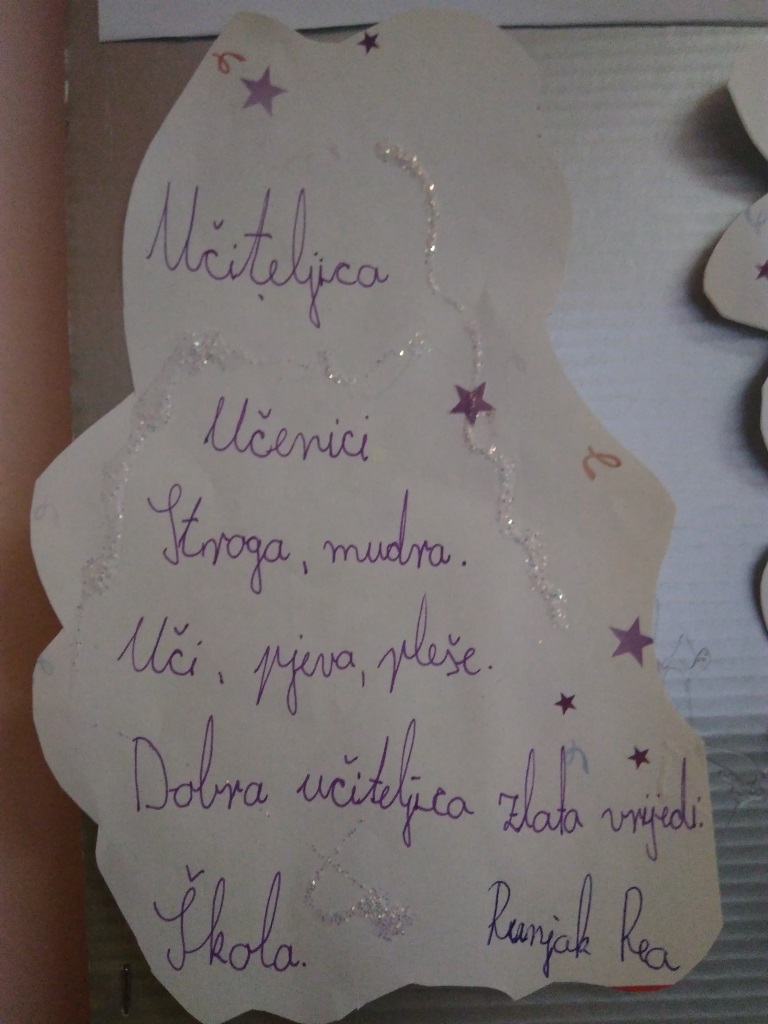 Učiteljica
Učenici
Stroga, mudra.
Uči, pjeva, pleše.
Dobra učiteljica zlata vrijedi.
Škola.
Runjak Rea